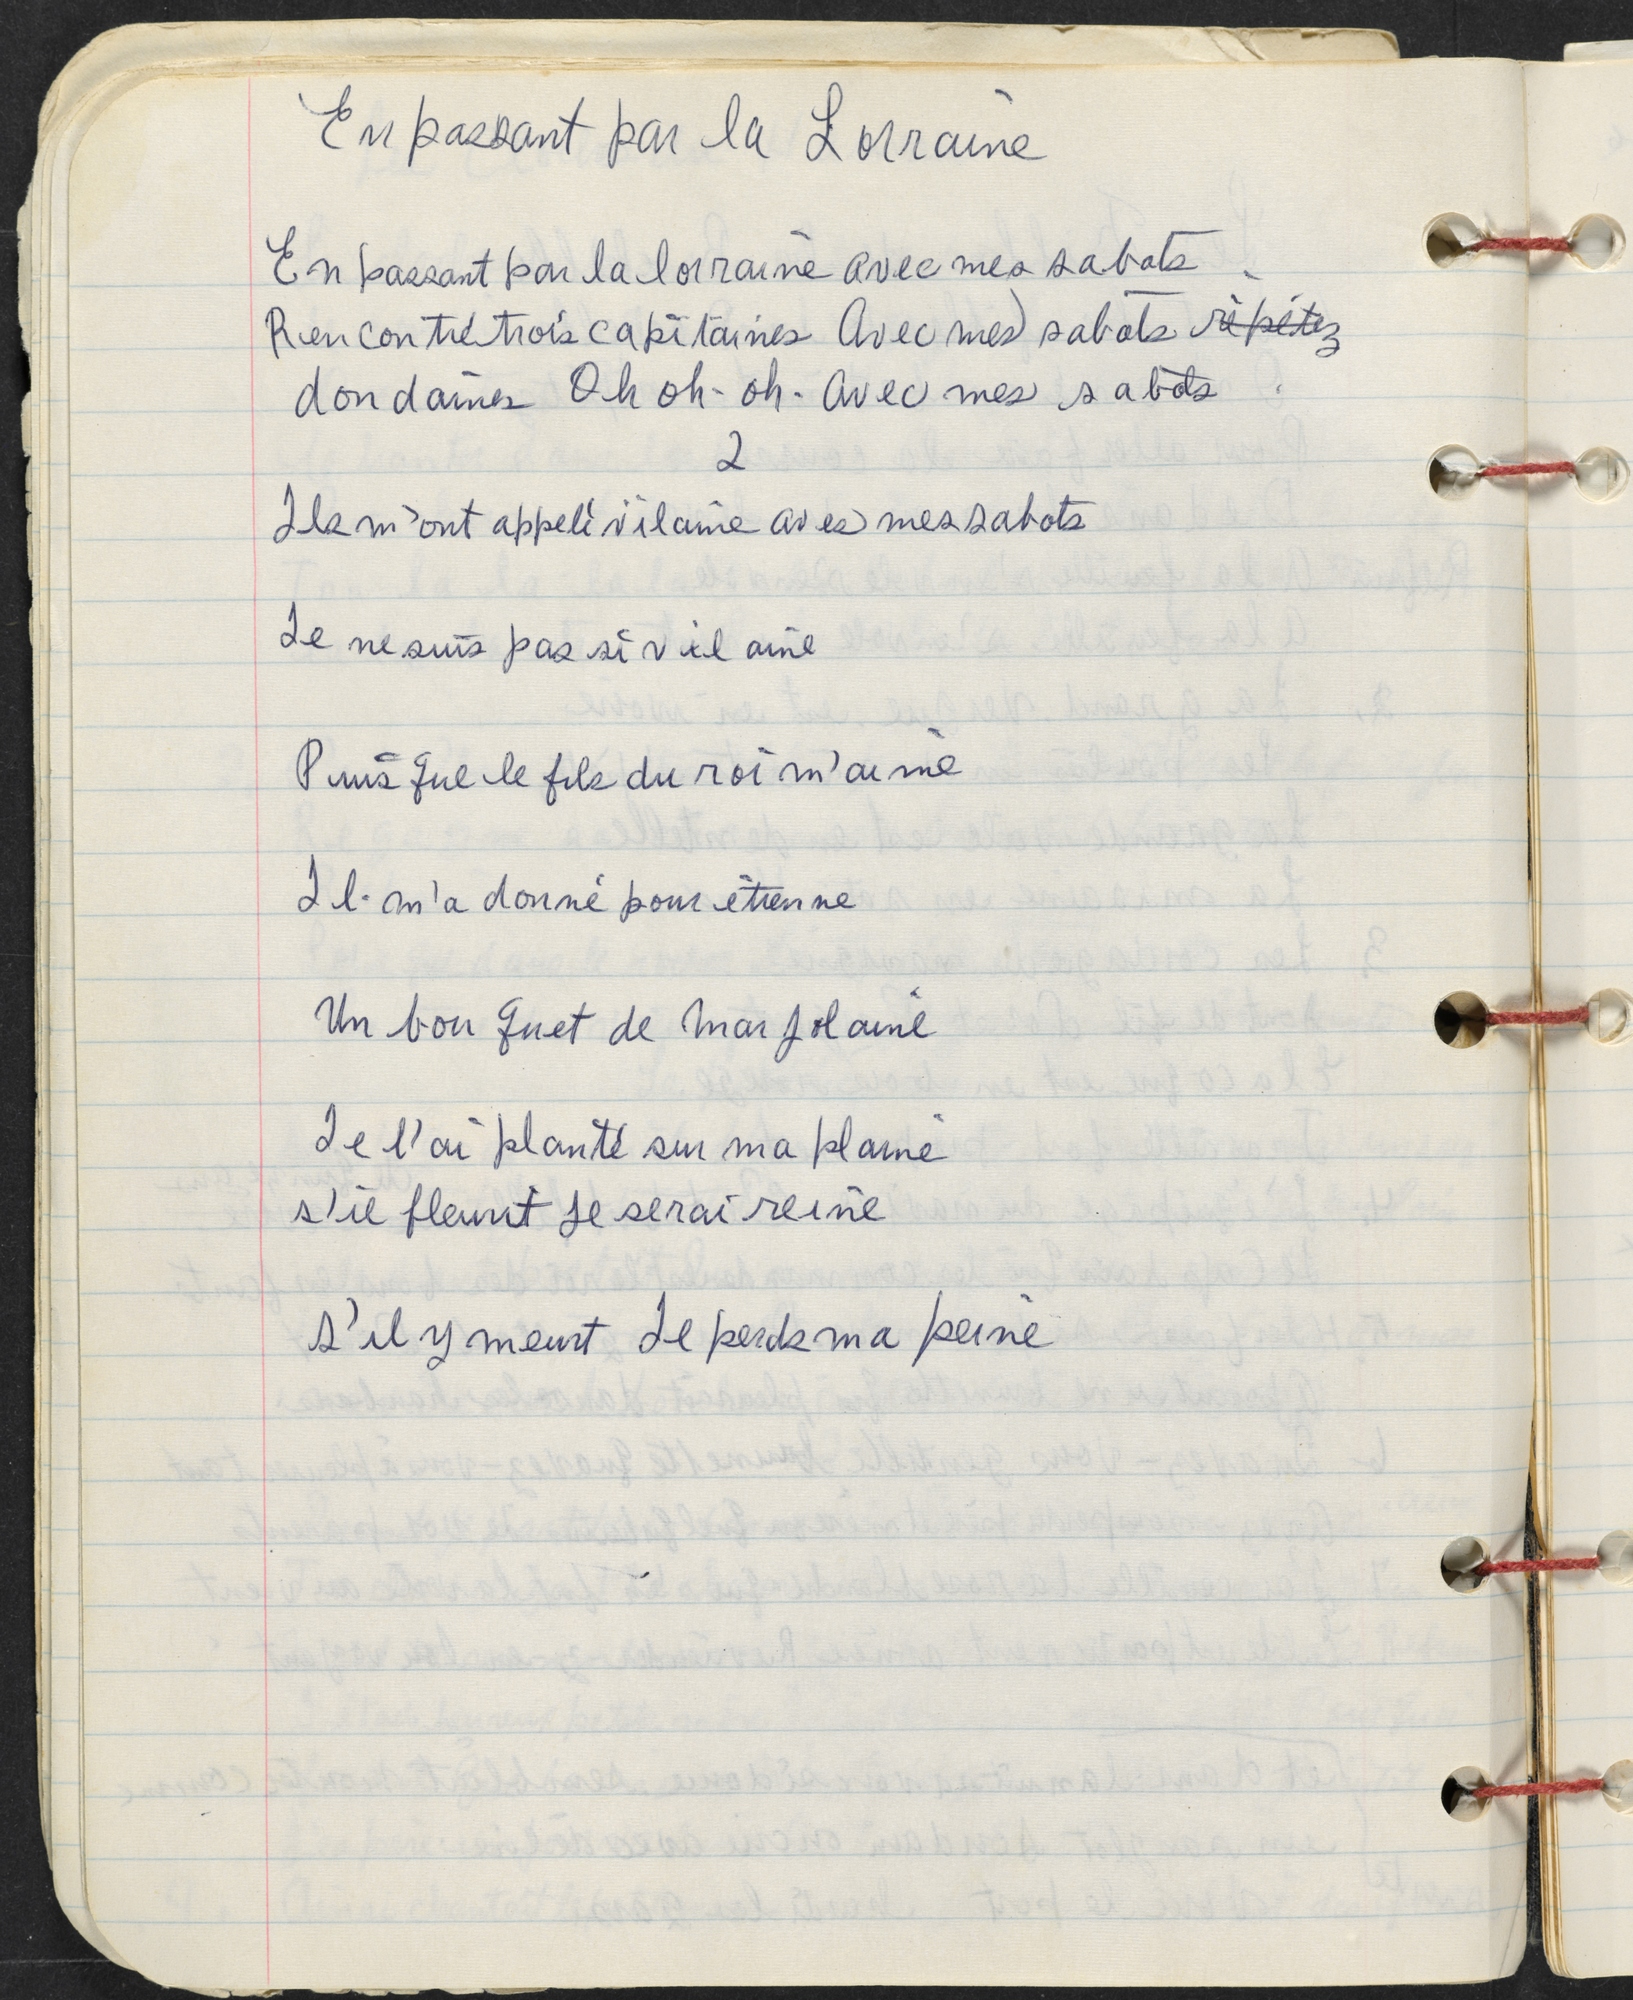 En passant par la Lorraine
En passant par la lorraine avec mes sabots
Rencontré trois capitaines Avec mes sabots répétez
dondaines Oh oh- oh- Avec mes sabots
2
Ils m'ont appelé vilaine avec mes sabots
Je ne suis pas si vilaine
Puisque le fils du roi m'aime
Il m'a donné pour étrenne
Un bouquet de marjolaine
Je l'ai planté sur ma plaine
s'il fleurit je serai reine
S'il y meurt Je perds ma peine